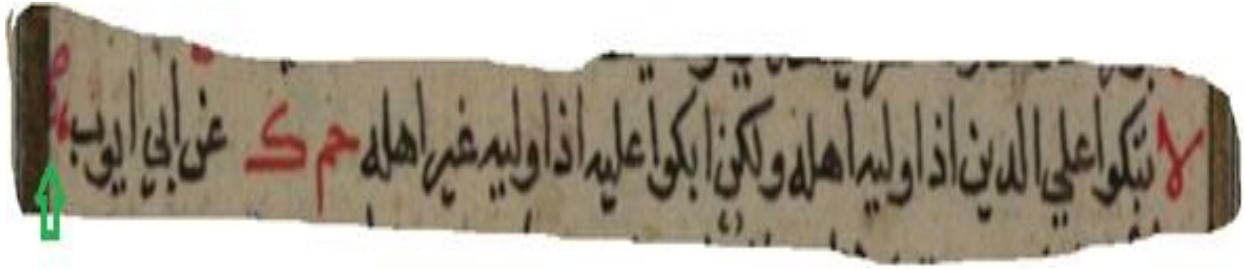 لا تبكوا علي الدين اذا وليه اهله ولكن ابكوا عليه اذا وليه غير اهله حم ك عن ابي ايوب